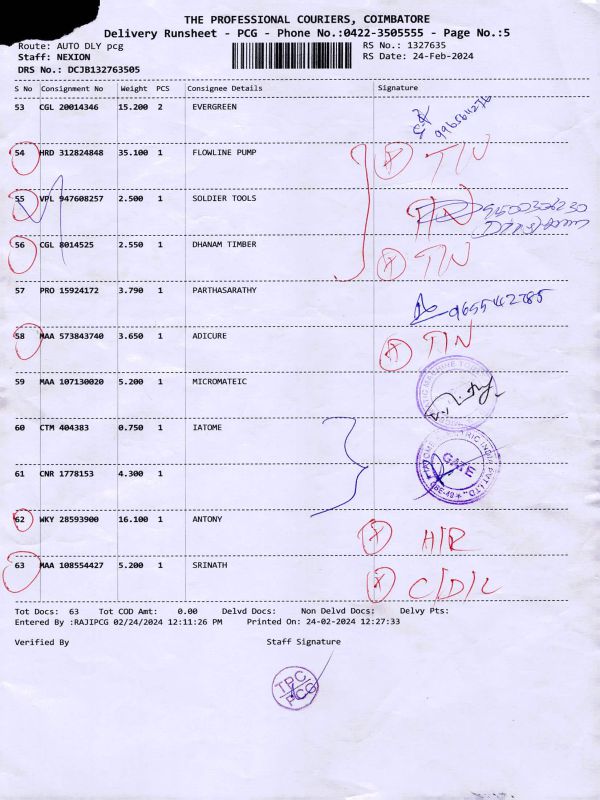 THE PROFESSIONAL COURIERS, COIMBATORE
Delivery Runsheet - PCG - Phone No.:0422-3505555 - Page No.:5
Route: AUTO DLY pcg RS No.: 1327635
Staff: NEXION RS Date: 24-Feb-2024
DRS No.: DCJB132763505
S No Consignment No Weight PCS Consignee Details Signature
53 CGL 20014346 15.200 2 EVERGREEN
54 HRD 312824848 35.100 1 FLOWLINE PUMP TIN
55 VPL 947608257 2.500 1 SOLDIER TOOLS
56 CGL 8014525 2.550 1 DHANAM TIMBER TIN
57 PRO 15924172 3.790 1 PARTHASARATHY 9655442785
58 MAA 573843740 3.650 1 ADICURE TIN
59 MAA 107130020 5.200 1 MICROMATEIC
60 CTM 404383 0.750 1 IATOME
61 CNR 1778153 4.300 1 GATE
62 WKY 28593900 16.100 1 ANTONY H/R
63 MAA 108554427 5.200 1 SRINATH C/D/L
Tot Docs: 63 Tot COD Amt: 0.00 Delvd Docs: Non Delvd Docs: Delvy Pts:
Entered By :RAJIPCG 02/24/2024 12:11:26 PM Printed On: 24-02-2024 12:27:33
Verified By Staff Signature
TPC/
PCG